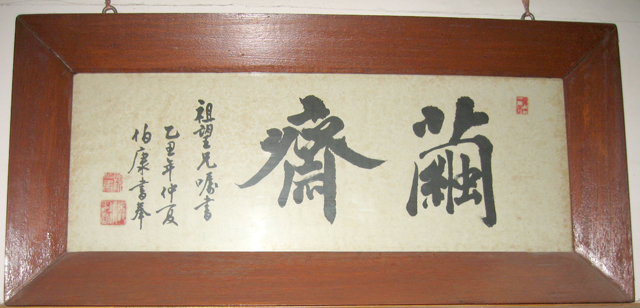 繭齋
祖望兄囑書
乙丑年仲夏
伯康書奉